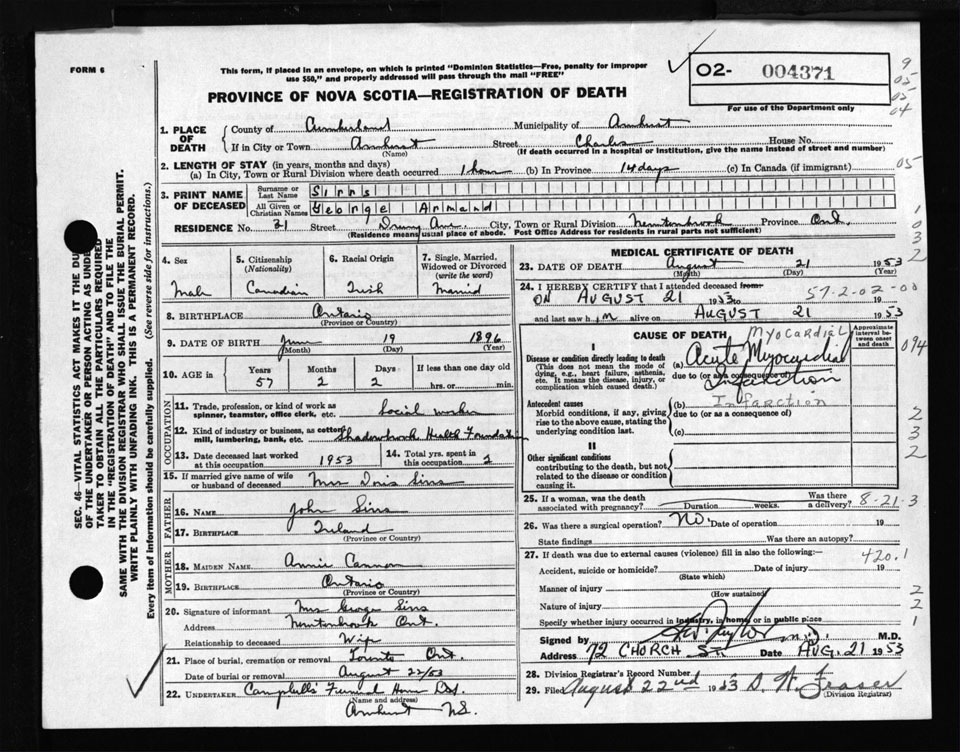 FORM 6
This form, if placed in an envelope, on which is printed "Dominion Statistics—Free, penalty for improper
use $50," and properly addressed will pass through the mail "FREE"
PROVINCE OF NOVA SCOTIA—REGISTRATION OF DEATH
02- 004371
For use of the Department only
9
05
05
04
1. PLACE OF DEATH
County of Cumberland Municipality of Amherst
If in City or Town Amherst Street Charles House No.
(Name) (If death occurred in a hospital or institution, give the name instead of street and number)
2. LENGTH OF STAY (in years, months and days)
(a) In City, Town or Rural Division where death occurred 1 hour (b) In Province 14 days (c) In Canada (if immigrant)
05
3. PRINT NAME OF DECEASED
Surname or Last Name Sirrs
All Given or Christian Names George Armand
RESIDENCE No. 31 Street Drury Ave. City, Town or Rural Division Newtonbrook Province Ont.
(Residence means usual place of abode. Post Office Address for residents in rural parts not sufficient)
1
0
3
2
4. Sex
Male
5. Citizenship
(Nationality)
Canadian
6. Racial Origin
Irish
7. Single, Married,
Widowed or Divorced
(write the word)
Married
8. BIRTHPLACE Ontario
(Province or Country)
9. DATE OF BIRTH June 19 1896
(Month) (Day) (Year)
10. AGE in
Years Months Days
57 2 2
If less than one day old
hrs. or min.
OCCUPATION
11. Trade, profession, or kind of work as
spinner, teamster, office clerk, etc. Social worker
12. Kind of industry or business, as cotton
mill, lumbering, bank, etc. Shadowbrook Health Foundation
13. Date deceased last worked
at this occupation 1953
14. Total yrs. spent in
this occupation 2
15. If married give name of wife
or husband of deceased Mrs Doris Sirrs
FATHER
16. NAME John Sirrs
17. BIRTHPLACE Ireland
(Province or Country)
MOTHER
18. MAIDEN NAME Annie Cannon
19. BIRTHPLACE Ontario
(Province or Country)
20. Signature of informant Mrs George Sirrs
Address Newtonbrook Ont.
Relationship to deceased Wife
21. Place of burial, cremation or removal Toronto Ont.
Date of burial or removal August 22/53
22. UNDERTAKER Campbell's Funeral Home Ltd.
(Name and address)
Amherst N.S.
MEDICAL CERTIFICATE OF DEATH
23. DATE OF DEATH August 21 1953
(Month) (Day) (Year)
24. I HEREBY CERTIFY that I attended deceased from
57-2-02-00
ON AUGUST 21 1953 to 19
and last saw him alive on AUGUST 21 1953
CAUSE OF DEATH
MYOCARDIAL
Approximate interval between onset and death
094
I
Disease or condition directly leading to death
(This does not mean the mode of
dying, e.g., heart failure, asthenia,
etc. It means the disease, injury, or
complication which caused death.)
(a) Acute Myocardial
due to (or as a consequence of)
Infarction
Antecedent causes
Morbid conditions, if any, giving
rise to the above cause, stating the
underlying condition last.
(b) INFARCTION
due to (or as a consequence of)
(c)
2
3
2
II
Other significant conditions
contributing to the death, but not
related to the disease or condition
causing it.
25. If a woman, was the death Was there
associated with pregnancy? Duration weeks. a delivery?
8-21-3
26. Was there a surgical operation? No. Date of operation 19
State findings Was there an autopsy?
27. If death was due to external causes (violence) fill in also the following:
420.1
Accident, suicide or homicide? Date of injury 19
(State which)
Manner of injury
(How sustained)
2
Nature of injury
2
Specify whether injury occurred in industry, in home or in public place
1
Signed by M.D. M.D.
Address 72 CHURCH ST. Date AUG. 21 1953
28. Division Registrar's Record Number
29. Filed August 22nd 1953 D. W. Fraser
(Division Registrar)
SEC. 46—VITAL STATISTICS ACT MAKES IT THE DU
OF THE UNDERTAKER OR PERSON ACTING AS UNDER
TAKER TO OBTAIN ALL THE PARTICULARS REQUIRED
IN THE "REGISTRATION OF DEATH" AND TO FILE THE
SAME WITH THE DIVISION REGISTRAR WHO SHALL ISSUE THE BURIAL PERMIT.
WRITE PLAINLY WITH UNFADING INK. THIS IS A PERMANENT RECORD.
Every item of information should be carefully supplied. (See reverse side for instructions.)